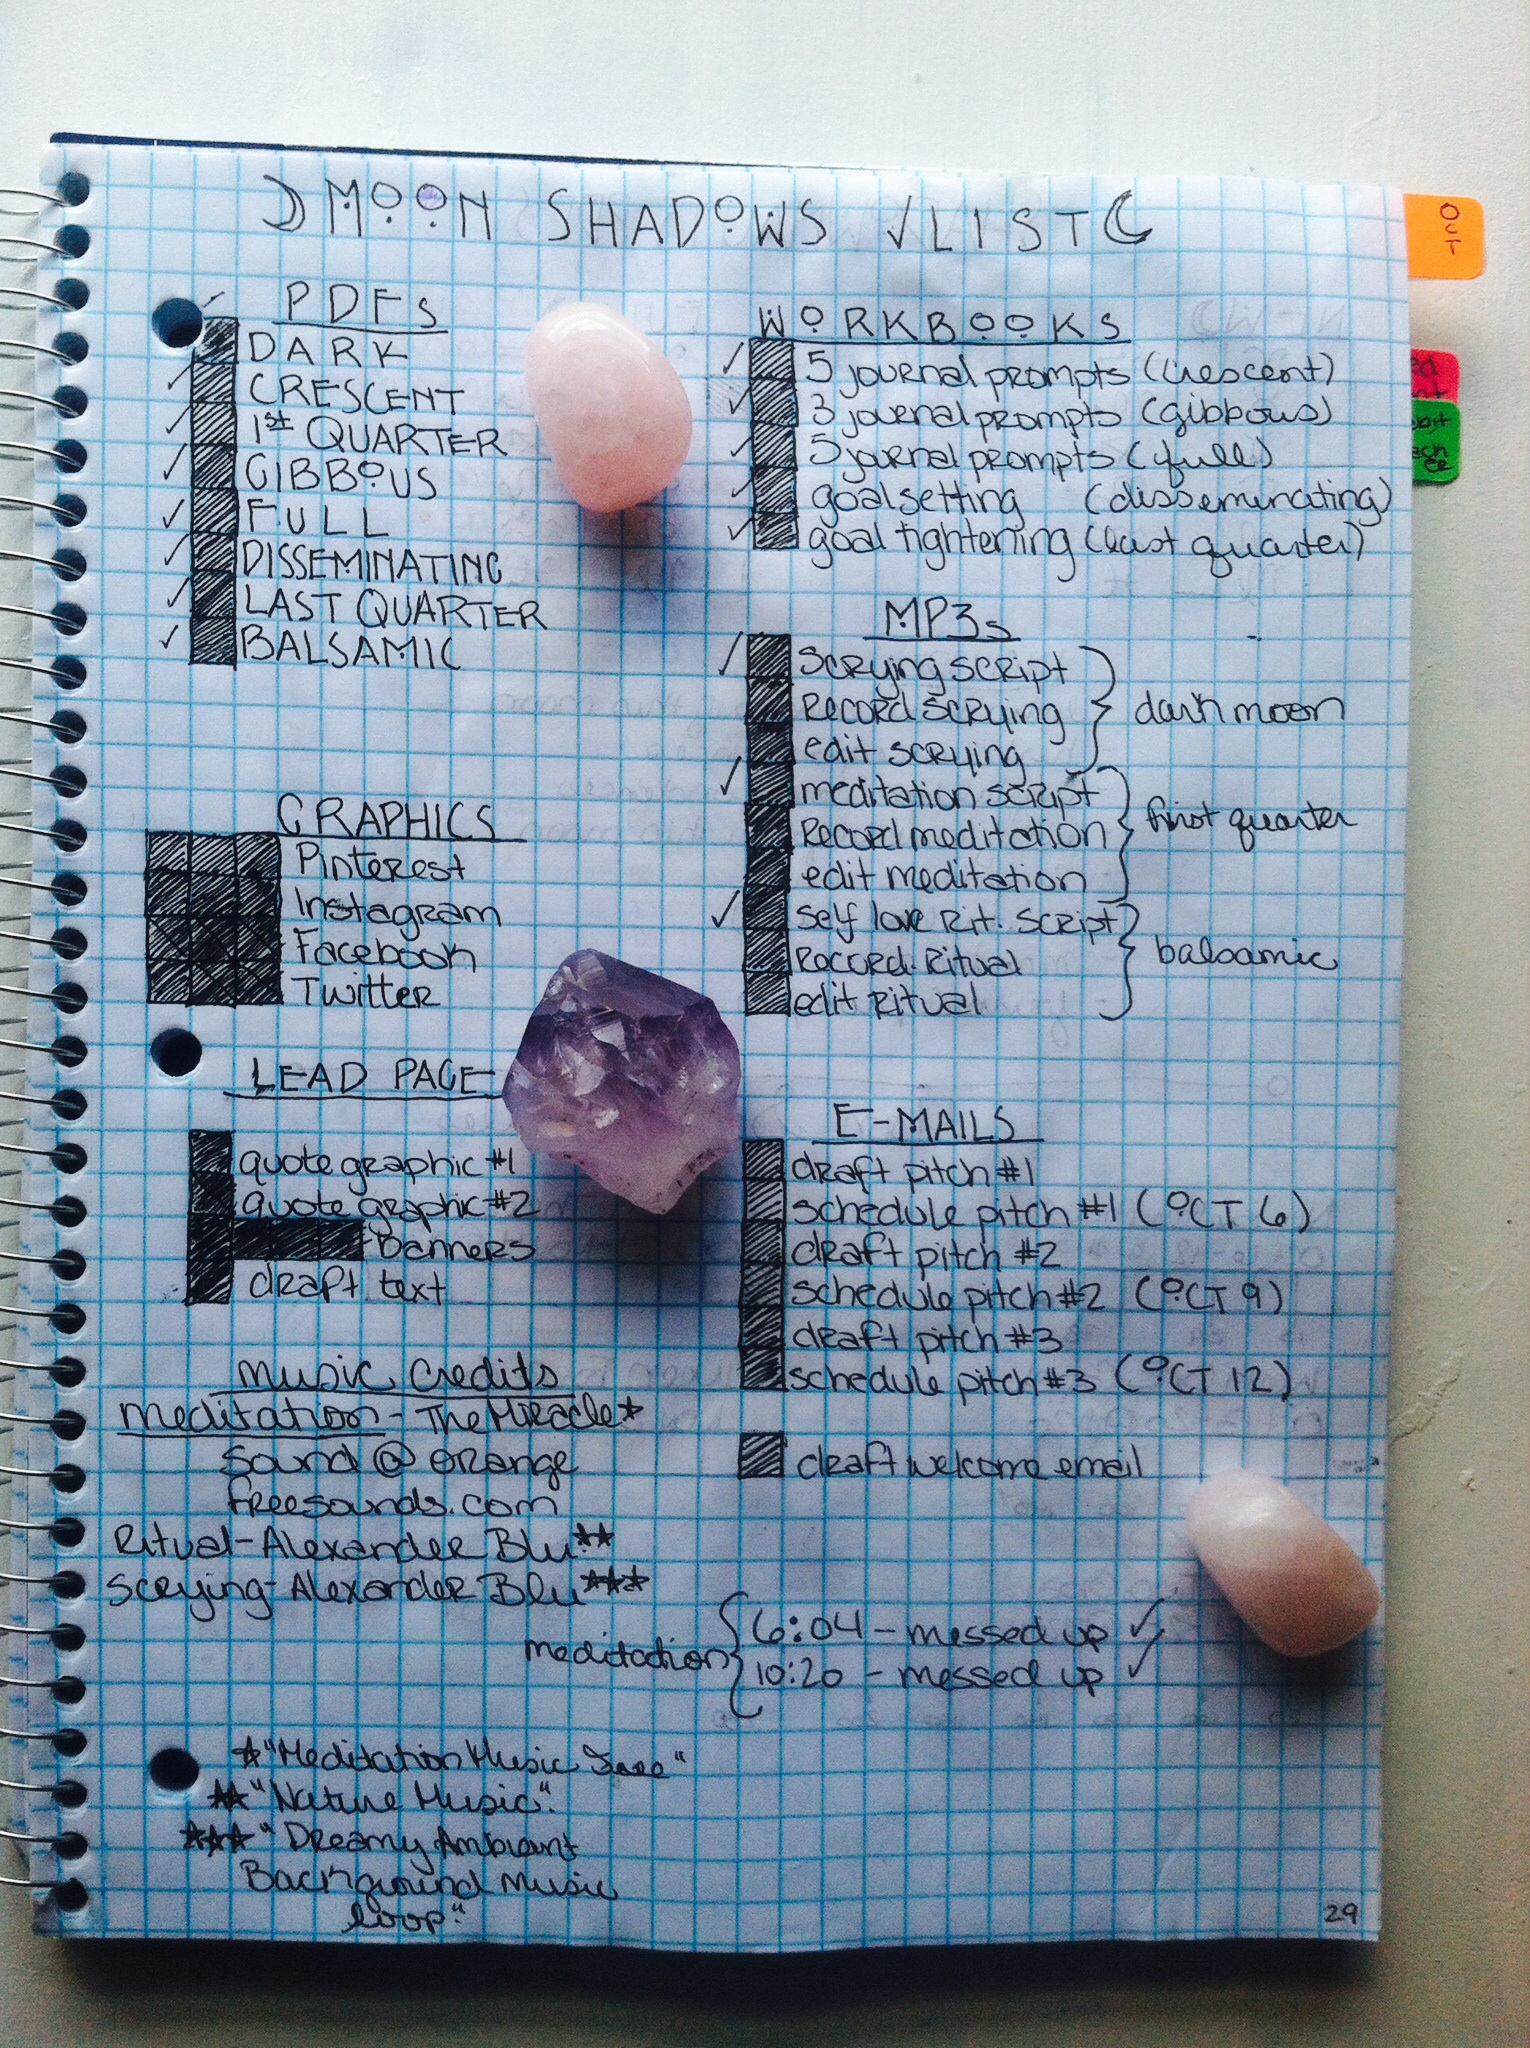 MOON SHADOWS √LIST
PDFs
DARK
CRESCENT
1st QUARTER
GIBBOUS
FULL
DISSEMINATING
LAST QUARTER
BALSAMIC
GRAPHICS
Pinterest
Instagram
Facebook
Twitter
LEAD PAGE
quote graphic #1
quote graphic #2
Banners
draft text
music credits
meditation - The Miracle*
sound @ orange
freesounds.com
Ritual - Alexander Blu **
scrying - Alexander Blu ***
WORKBOOKS
5 journal prompts (crescent)
3 journal prompts (gibbous)
5 journal prompts (full)
goal setting (disseminating)
goal tightening (last quarter)
MP3s
scrying script
Record scrying
edit scrying
dark moon
meditation script
Record meditation
edit meditation
first quarter
self love Rit. script
Record Ritual
edit Ritual
balsamic
E-MAILS
draft pitch #1
schedule pitch #1 (OCT 6)
draft pitch #2
schedule pitch #2 (OCT 9)
draft pitch #3
schedule pitch #3 (OCT 12)
draft welcome email
meditation
6:04 - messed up ✓
10:20 - messed up ✓
* "Meditation Music Free"
** "Nature Music".
*** "Dreamy Ambient
Background music
loop".
29
OCT